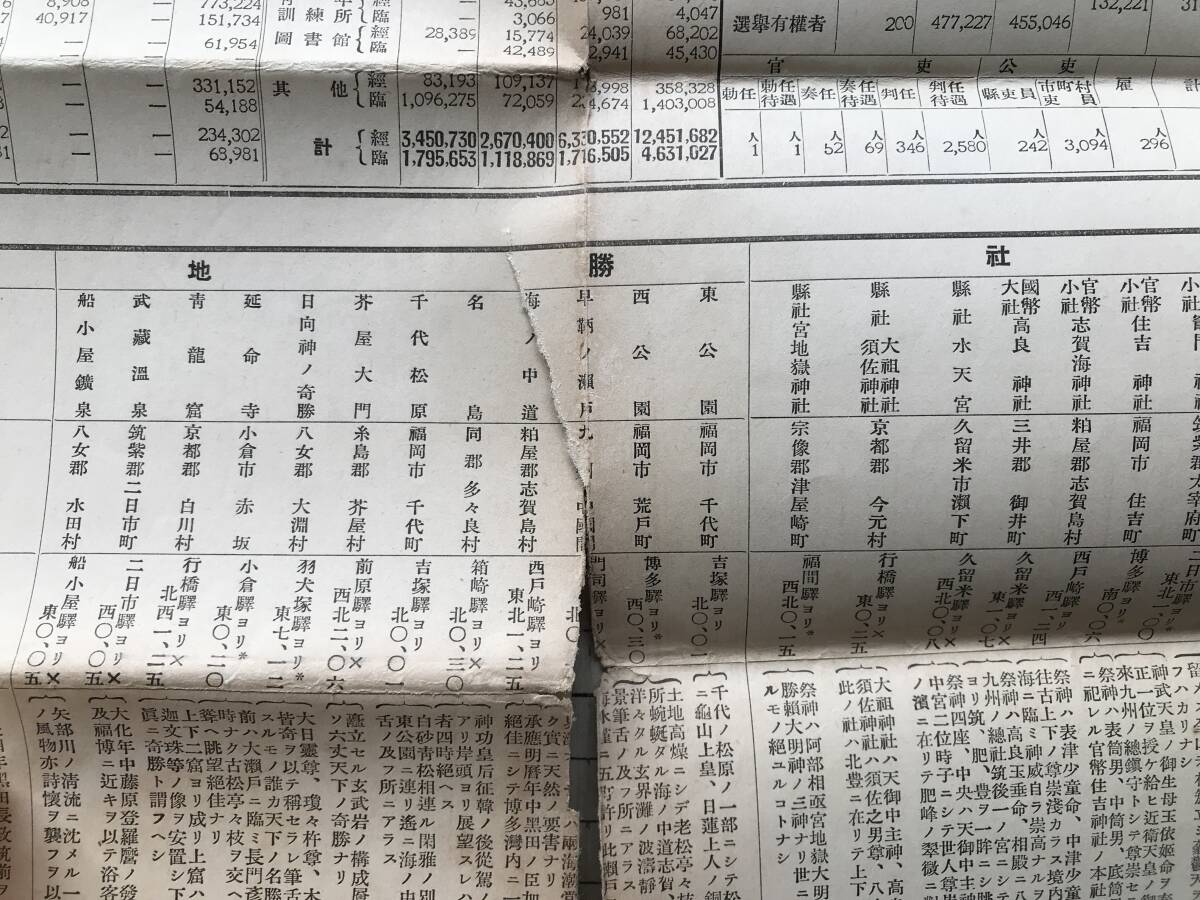 8,908 — 773,224
40,917 — 151,734
— 61,954
— 331,152
— 54,188
— 234,302
— 63,981
訓練所 經 臨 3,066 981 4,047
圖書館 經 28,389 15,774 24,039 68,202
臨 — 42,489 2,941 45,430
其他 經 83,193 109,137 358,328
臨 1,096,275 72,059 1,403,008
計 經 3,450,730 2,670,400 12,451,682
臨 1,795,653 1,118,869 4,631,027
132,221
選擧有權者 200 477,227 455,046
官吏公吏
勅任 勅任待遇 奏任 奏任待遇 判任 判任待遇 縣吏員 市町村吏員 雇 計
人1 人1 人52 人69 人346 人2,580 人242 人3,094 人296
社
官幣小社 住吉神社 福岡市住吉町 博多驛ヨリ* 南〇、〇六
官幣小社 志賀海神社 粕屋郡志賀島村 西戸崎驛ヨリ 西一、三四
國幣大社 高良神社 三井郡御井町 久留米驛ヨリ× 東一、〇七
縣社 水天宮 久留米市瀬下町 久留米驛ヨリ× 西北〇、〇八
縣社 大祖神社 須佐神社 京都郡今元村 行橋驛ヨリ× 東〇、二五
縣社 宮地嶽神社 宗像郡津屋崎町 福間驛ヨリ* 西北〇、一五
勝地
東公園 福岡市千代町 吉塚驛ヨリ* 北〇、〇一
西公園 福岡市荒戸町 博多驛ヨリ* 西〇、三〇
早鞆ノ瀬戸
海ノ中道 粕屋郡志賀島村 西戸崎驛ヨリ 東北一、二五
名島 同郡多々良村 箱崎驛ヨリ× 北〇、三〇
千代松原 福岡市千代町 吉塚驛ヨリ× 北〇、〇一
芥屋大門 糸島郡芥屋村 前原驛ヨリ× 西北二、〇六
日向神ノ奇勝 八女郡大淵村 羽犬塚驛ヨリ* 東七、一二
延命寺 小倉市赤坂 小倉驛ヨリ* 東〇、二〇
靑龍窟 京都郡白川村 行橋驛ヨリ× 北西一、二五
武藏溫泉 筑紫郡二日市町 二日市驛ヨリ× 西〇、〇五
船小屋鑛泉 八女郡水田村 船小屋驛ヨリ× 東〇、〇五
祭神ハ表津少童命、中津少童
往古上下ノ尊崇淺カラス境內
海ニ臨ミ神威自ラ崇高ナルヲ
祭神ハ高良玉垂命、相殿ニ八
九州ノ總社筑後一ノ宮ニシテ
ヨリ筑、肥、豊ヲ一眸ニシ眺
祭神四座、中央ハ天御中主神
中宮二位時子ニシテ世人尊崇
ノ濱ニ在リテ肥峰ノ翠微ニ對
大祖神社ハ天御中主神、高
須佐神社ハ須佐之男尊、八
此ノ社ハ北豊ニ在リテ上下
祭神ハ阿部相亟宮地嶽大明
勝賴大明神ノ三神ナリ世ニ
ルモノ絕ユルコトナシ
千代ノ松原ノ一部ニシテ松
ニ龜山上皇、日蓮上人ノ銅
土地高燥ニシテ老松亭々枝
所蜿蜒タル海ノ中道志賀、
洋々タル玄界灘ノ波濤靜
景筆舌ノ及フ所ニアラス
承應明曆年中黑田ノ臣加
絕佳ニシテ博多灣內ニ一
神功皇后征韓ノ後從駕ノ
アリ岸頭ヨリ展望スレハ
者四時絕ヘス
白砂靑松相連ル閑雅ノ別
東公園ニ連リ遙ニ海ノ中
舌ノ及フ所ニアラス
矗立セル玄武岩ノ構成厨
ソ六丈天下ノ奇勝ナリ
大日靈尊、瓊々杵尊、木
皆奇ヲ以テ稱セラレ筆舌
スルモノ誰カ天下ノ名勝
前ハ大瀨戸ニ臨ミ長門彥
時ナク古松亭々枝ヲ交ヘ
上下二窟ヨリ成リ上窟ハ
聳ヘ眺望絕佳ナリ
迦文珠等ノ像ヲ安置シ下
眞ニ奇勝ト謂フヘシ
大化年中藤原登羅麿ノ發
及福博ニ近キヲ以テ浴客
矢部川ノ淸流ニ沈メル一
ノ風物亦詩懷ヲ襲フヲ以